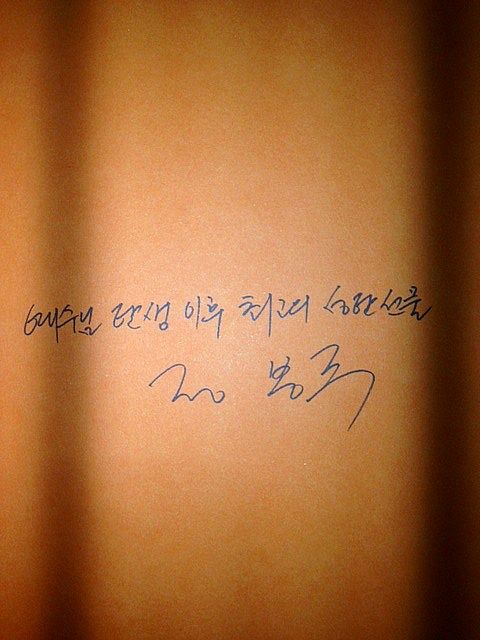 예수님 탄생 이후 최고의 성탄선물
정봉주